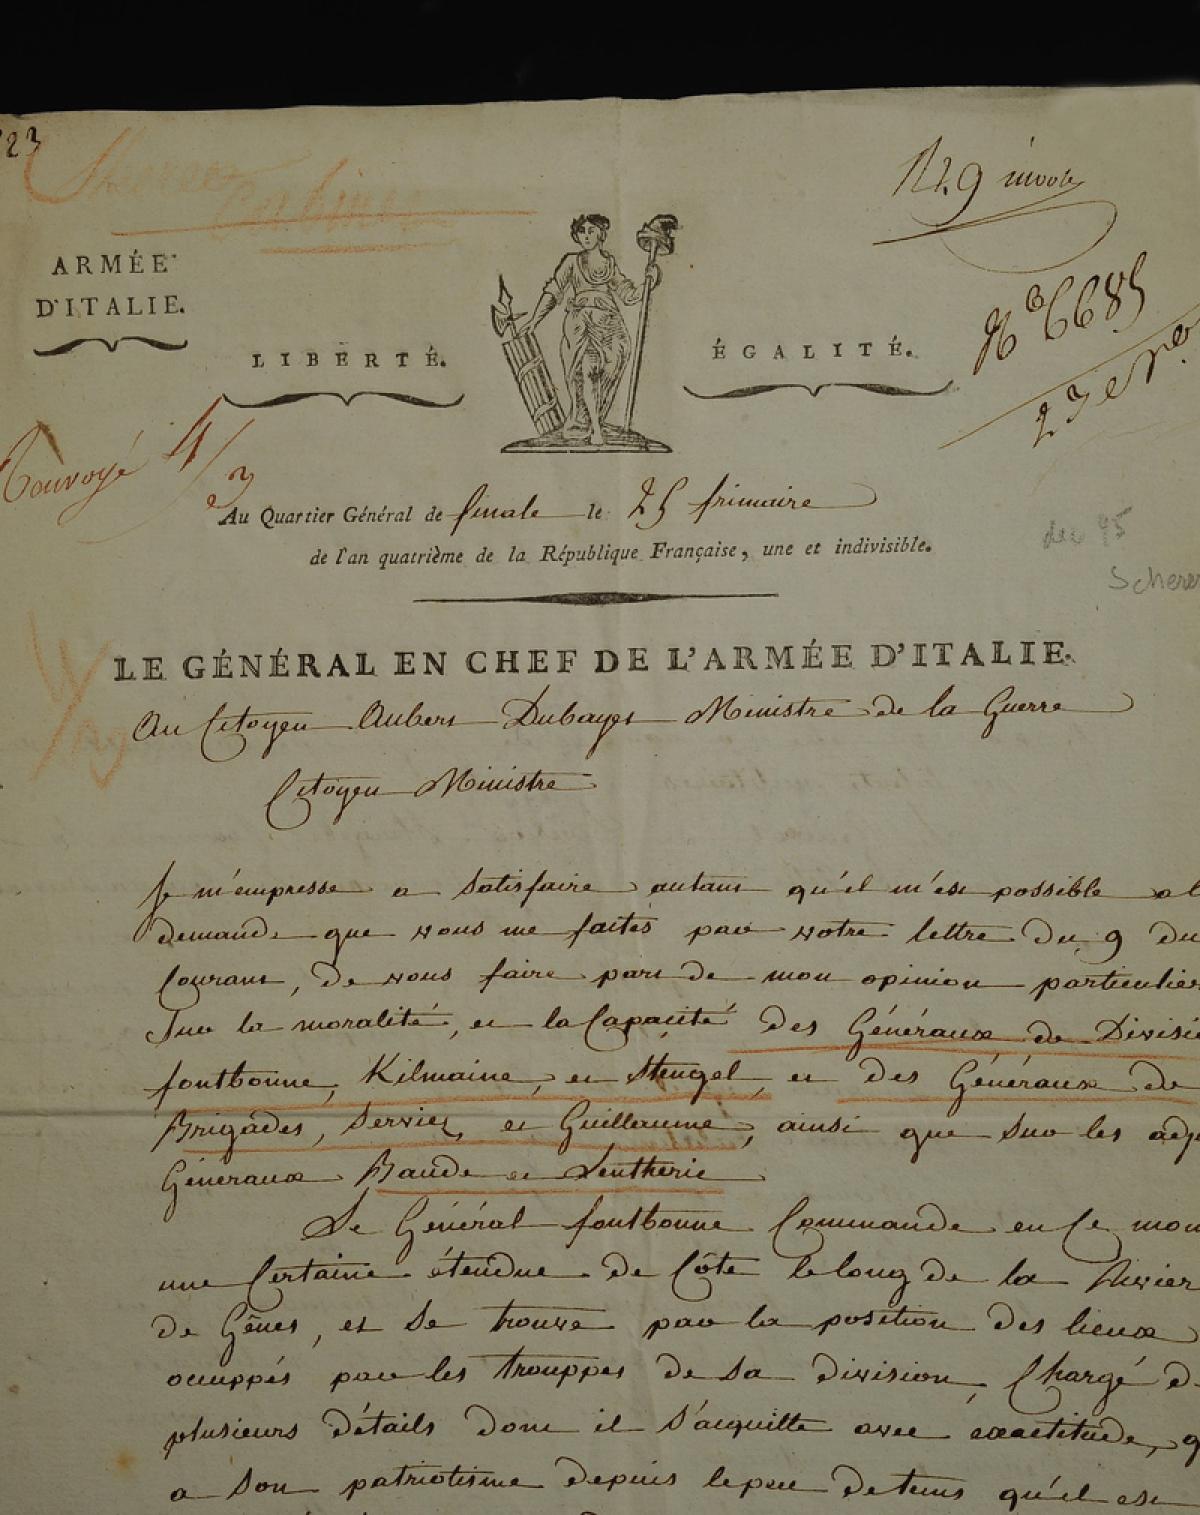 23
ARMÉE
D'ITALIE.
LIBERTÉ.
ÉGALITÉ.
6685
4/3
Au Quartier Général de finale le 25 frimaire
de l'an quatrième de la République Française, une et indivisible.
dec 95
Scherer
LE GÉNÉRAL EN CHEF DE L'ARMÉE D'ITALIE.
Au Citoyen Aubert Dubayet Ministre de la Guerre
Citoyen Ministre
Je m'empresse a satisfaire autant qu'il m'est possible a l
demande que vous me faites par votre lettre du 9 du
Courant, de vous faire part de mon opinion particulier
Sur la moralité, et la Capacité des Généraux de Divisi
fontbonne, Kilmaine, et Stengel, et des Généraux de
Brigades, Serviez, et Guillaume, ainsi que sur les adj
Généraux Baude et Lentherie
Le Général fontbonne Commande en Ce mom
une Certaine étendue de Côte le long de la Rivier
de Gênes, et se trouve par la position des lieux
ocuppés par les trouppes de sa division, Chargé d
plusieurs détails dont il s'acquitte avec éxactitude, q
a son patriotisme depuis le peu de tems qu'il est